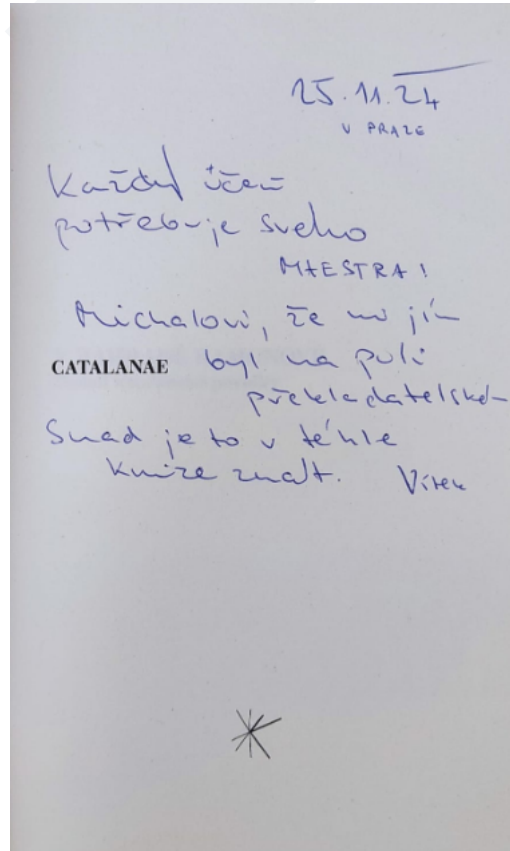 25.11.24
V PRAZE
Každý učeň
potřebuje svého
MAESTRA!
Michalovi, že mi jím
CATALANAE byl na poli
překladatelském
Snad je to v téhle
knize znát. Vítek